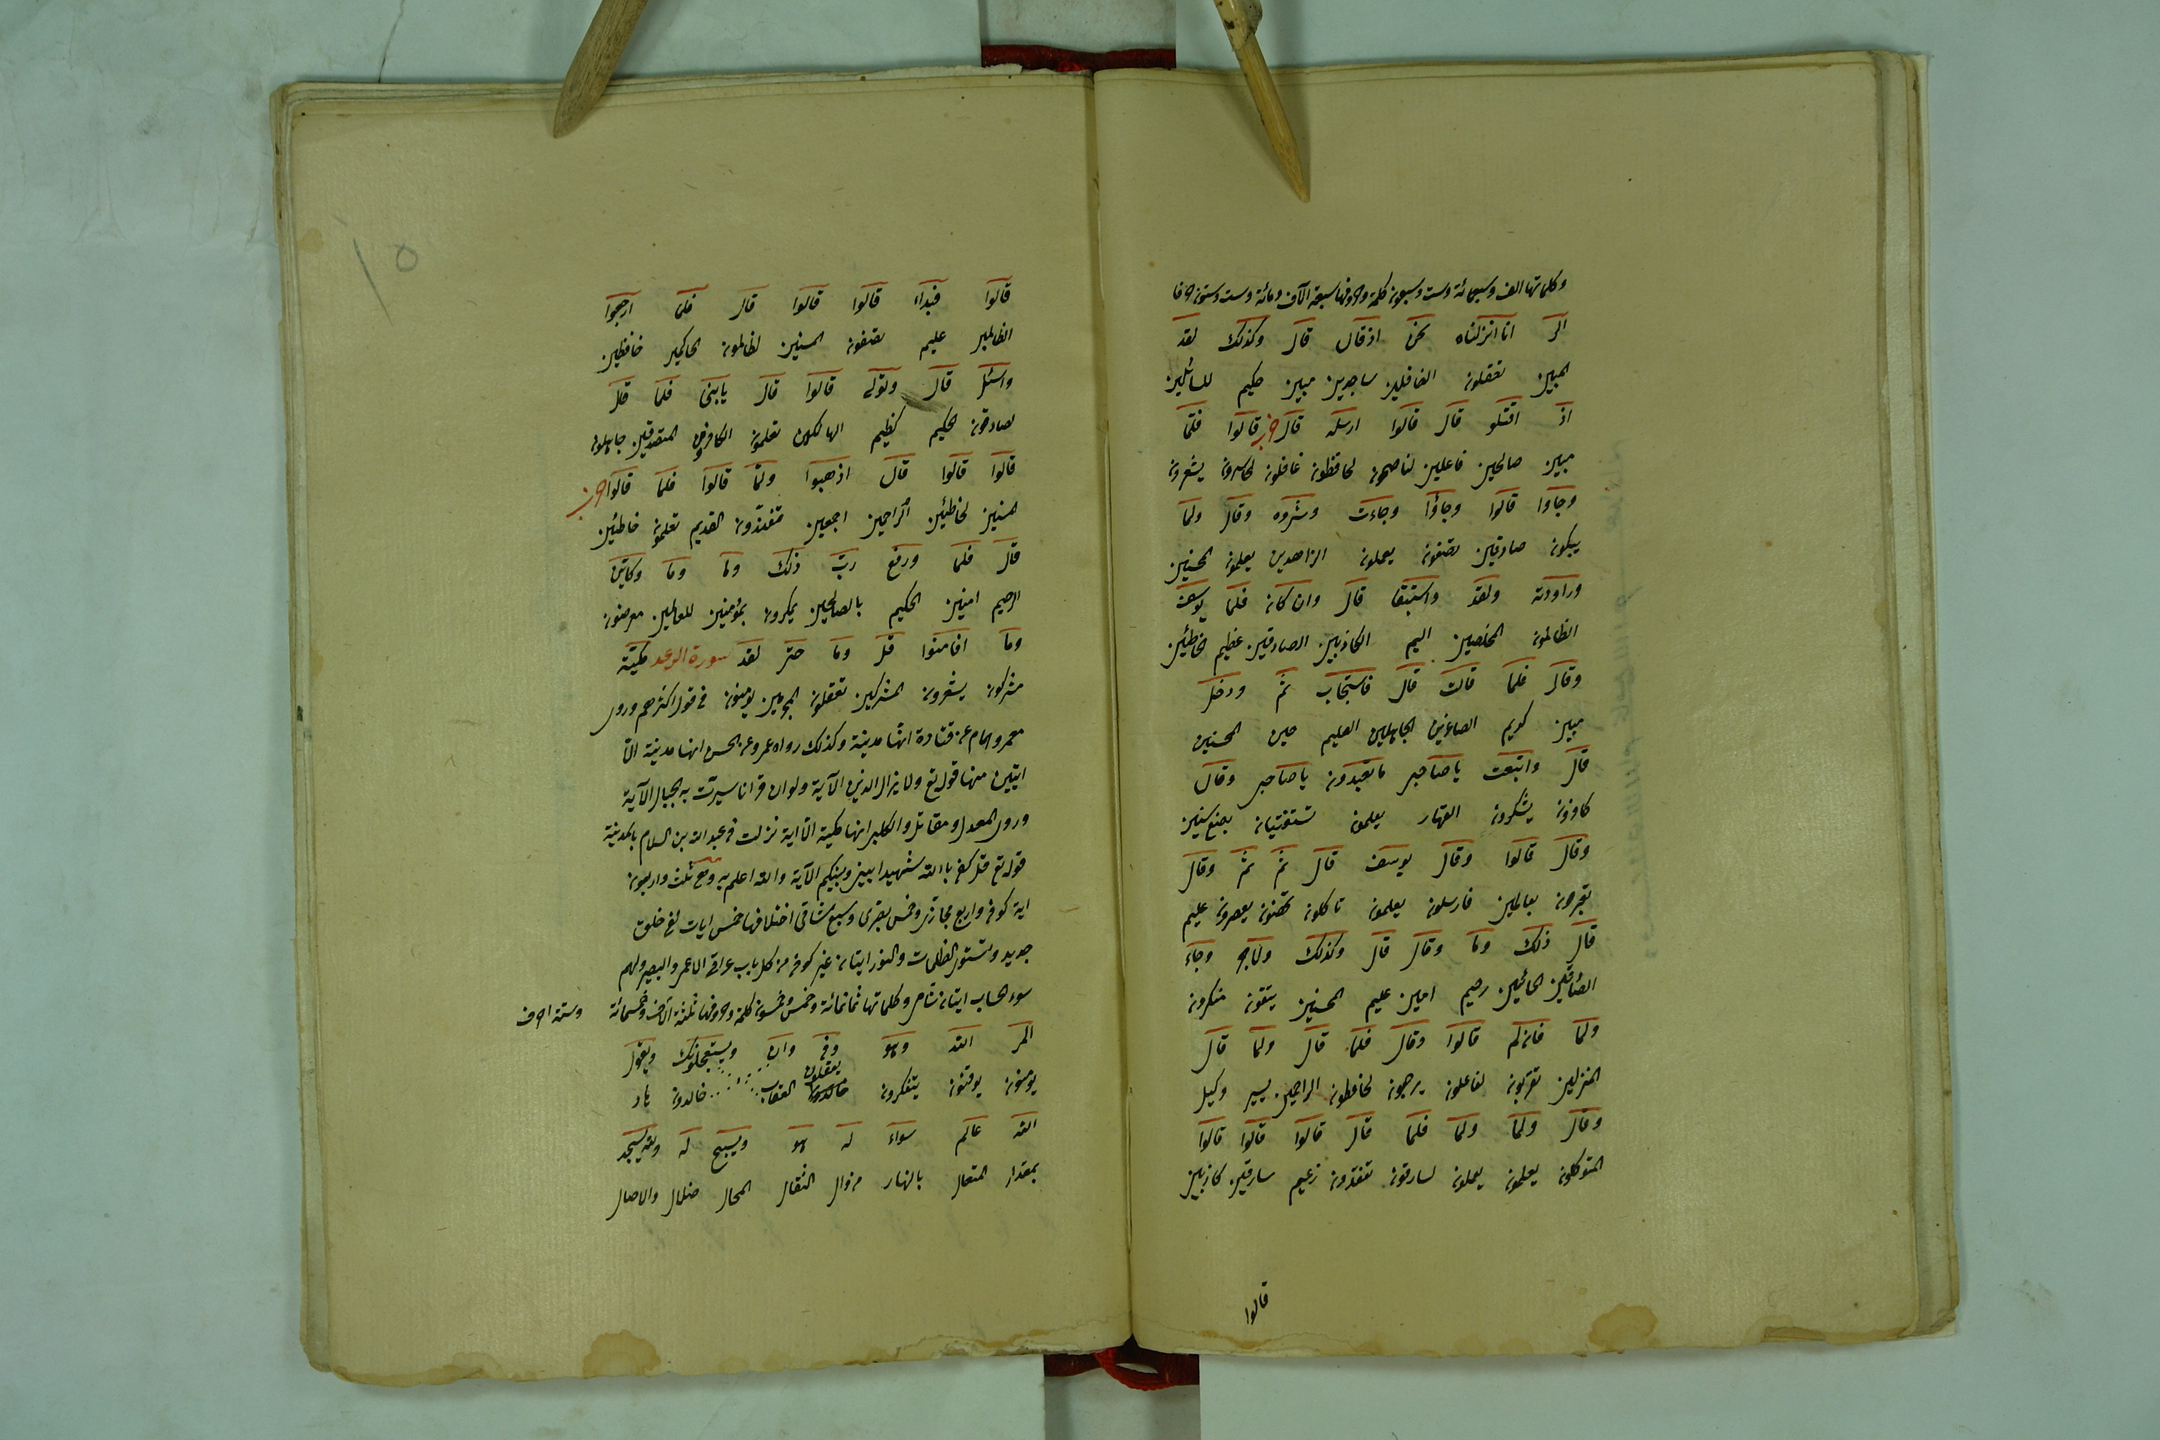 وكلماتها الف وسبعمائة وست وسبعون كلمة وحروفها سبعة الآف ومائة وست وستون حرفا
الر انا انزلناه نحن اذ قال قال وكذلك لقد
المبين تعقلون الغافلين ساجدين مبين حكيم للسائلين
اذ اقتلو قال قالوا ارسله قال حزب قالوا فلما
مبين صالحين فاعلين لناصحون لحافظون غافلون لخاسرون يشعرون
وجاوا قالوا وجاؤا وجاءت وشروه وقال ولما
يبكون صادقين تصفون يعملون الزاهدين يعلمون المحسنين
وراودته ولقد واستبقا قال وان كان فلما يوسف
الظالمون المخلصين اليم الكاذبين الصادقين عظيم خاطئين
وقال فلما قالت قال فاستجاب ثم ودخل
مبين كريم الصاغرين الجاهلين العليم حين المحسنين
قال واتبعت ياصاحبى ماتعبدون ياصاحبى وقال
كافرون يشكرون القهار يعلمون تستفتيان بضع سنين
وقال قالوا وقال يوسف قال ثم ثم وقال
تعبرون بعالمين فارسلون يعلمون تاكلون تحصنون يعصرون عليم
قال ذلك وما وقال قال وكذلك ولاجر وجاء
الصادقين الخائنين رحيم امين عليم المحسنين يتقون منكرون
ولما فان لم قالوا وقال فلما قال ولما قال
المنزلين تقربون لفاعلون يرجعون لحافظون الراحمين يسير وكيل
وقال ولما ولما فلما قال قالوا قالوا قالوا
المتوكلون يعلمون يعملون لسارقون تفقدون زعيم سارقين كاذبين
قالوا
١٥
قالوا فبداء قالوا قالوا قال فلما ارجعوا
الظالمين عليم تصفون المحسنين لظالمون الحاكمين حافظين
واسئل قال وتولى قالوا قال يابنى فلما قال
لصادقون الحكيم كظيم الهالكين تعلمون الكافرون المتصدقين جاهلون
قالوا قالوا قال اذهبوا ولما قالوا فلما قالوا حزب
المحسنين لخاطئين الراحمين اجمعين تفندون القديم تعلمون خاطئين
قال فلما ورفع رب ذلك وما وما وكاين
الرحيم امنين الحكيم بالصالحين يمكرون بمؤمنين للعالمين معرضون
وما افامنوا قل وما حتى لقد سورة الرعد مكية
مشركون يشعرون المشركين تعقلون المجرمين يؤمنون فى قول اكثرهم وروى
معمر وهمام عن قتادة انها مدنية وكذلك رواه عمرو عن الحسن انها مدنية الا
ايتين منها قوله تع ولا يزال الذين الآية ولو ان قرانا سيرت به الجبال الآية
وروى المعدل ومقاتل والكلبى انها مكية الا اية نزلت فى عبد الله بن السلام بالمدينة
قوله تع قل كفى بالله شهيدا بينى وبينكم الآية والله اعلم به وهى ثلث واربعون
اية كوفى واربع حجازى وخمس بصرى وسبع شامى اختلافها خمس ايات لفى خلق
جديد وتستوى الظلمات والنور ايتان غير كوفى من كل باب عراقى الاعمى والبصير ولهم
سوء الحساب ايتان شامى وكلماتها ثمانمائة وخمس وخمسون كلمة وحروفها ثلثة الآف وخمسمائة وستة احرف
المر الله وهو وفى وان ويستعجلونك ويقول
يؤمنون يوقنون يتفكرون يعقلون خالدون العقاب خالدون هاد
الله عالم سواء له هو ويسبح له ولله يسجد
بمقدار المتعال بالنهار من وال الثقال المحال ضلال والاصال